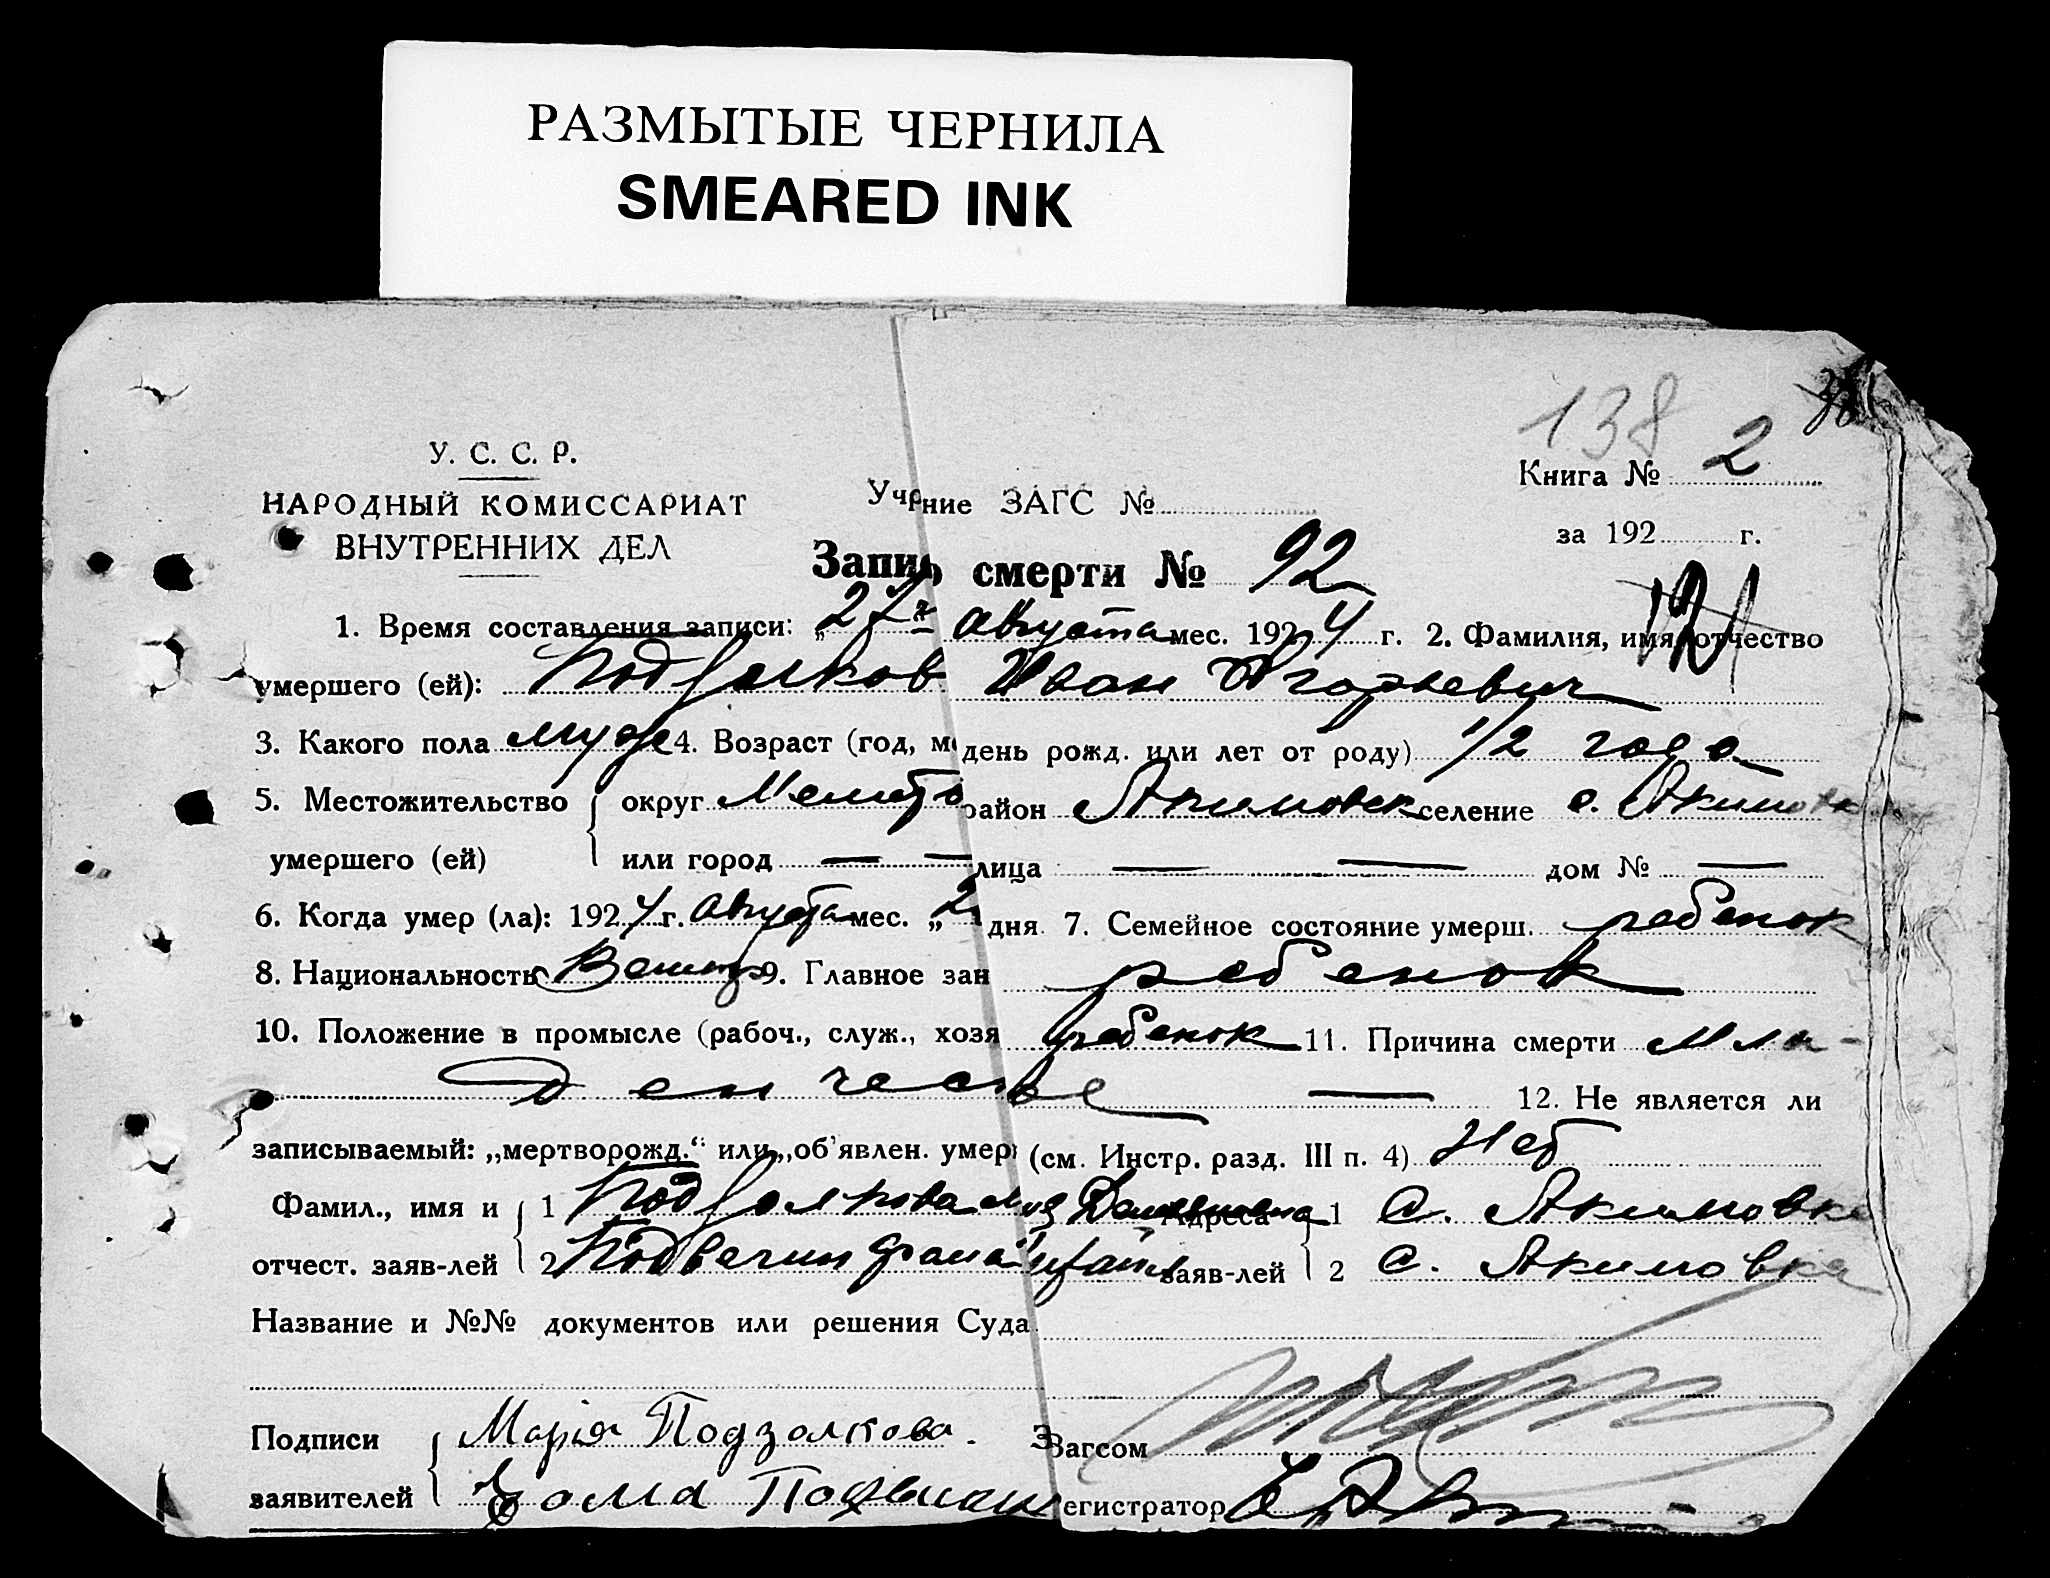 РАЗМЫТЫЕ ЧЕРНИЛА
SMEARED INK
138
У. С. С. Р.
НАРОДНЫЙ КОМИССАРИАТ
ВНУТРЕННИХ ДЕЛ
Учр ние ЗАГС №
Книга № 2
за 192 г.
Запись смерти № 92
121
1. Время составления записи: „27“ Августа мес. 1924 г. 2. Фамилия, имя, отчество
умершего (ей): Иван Игорьевич
3. Какого пола муж 4. Возраст (год, м день рожд. или лет от роду) 1/2 года
5. Местожительство округ Мелито район Акимовск селение с. Акимовка
умершего (ей) или город — — лица — — дом № —
6. Когда умер (ла): 1924 г. Августа мес. „2 дня 7. Семейное состояние умерш. ребенок
8. Национальность 9. Главное зан ребенок
10. Положение в промысле (рабоч., служ., хозя ребенок 11. Причина смерти Мла-
денческое — 12. Не является ли
записываемый: „мертворожд.“ или „об'явлен. умер (см. Инстр. разд. III п. 4) Нет
Фамил., имя и 1 Подзолкова Адреса 1 С. Акимовка
отчест. заяв-лей 2 заяв-лей 2 С. Акимовка
Название и №№ документов или решения Суда
Подписи Марія Подзолкова. Загсом
заявителей Фома егистратор